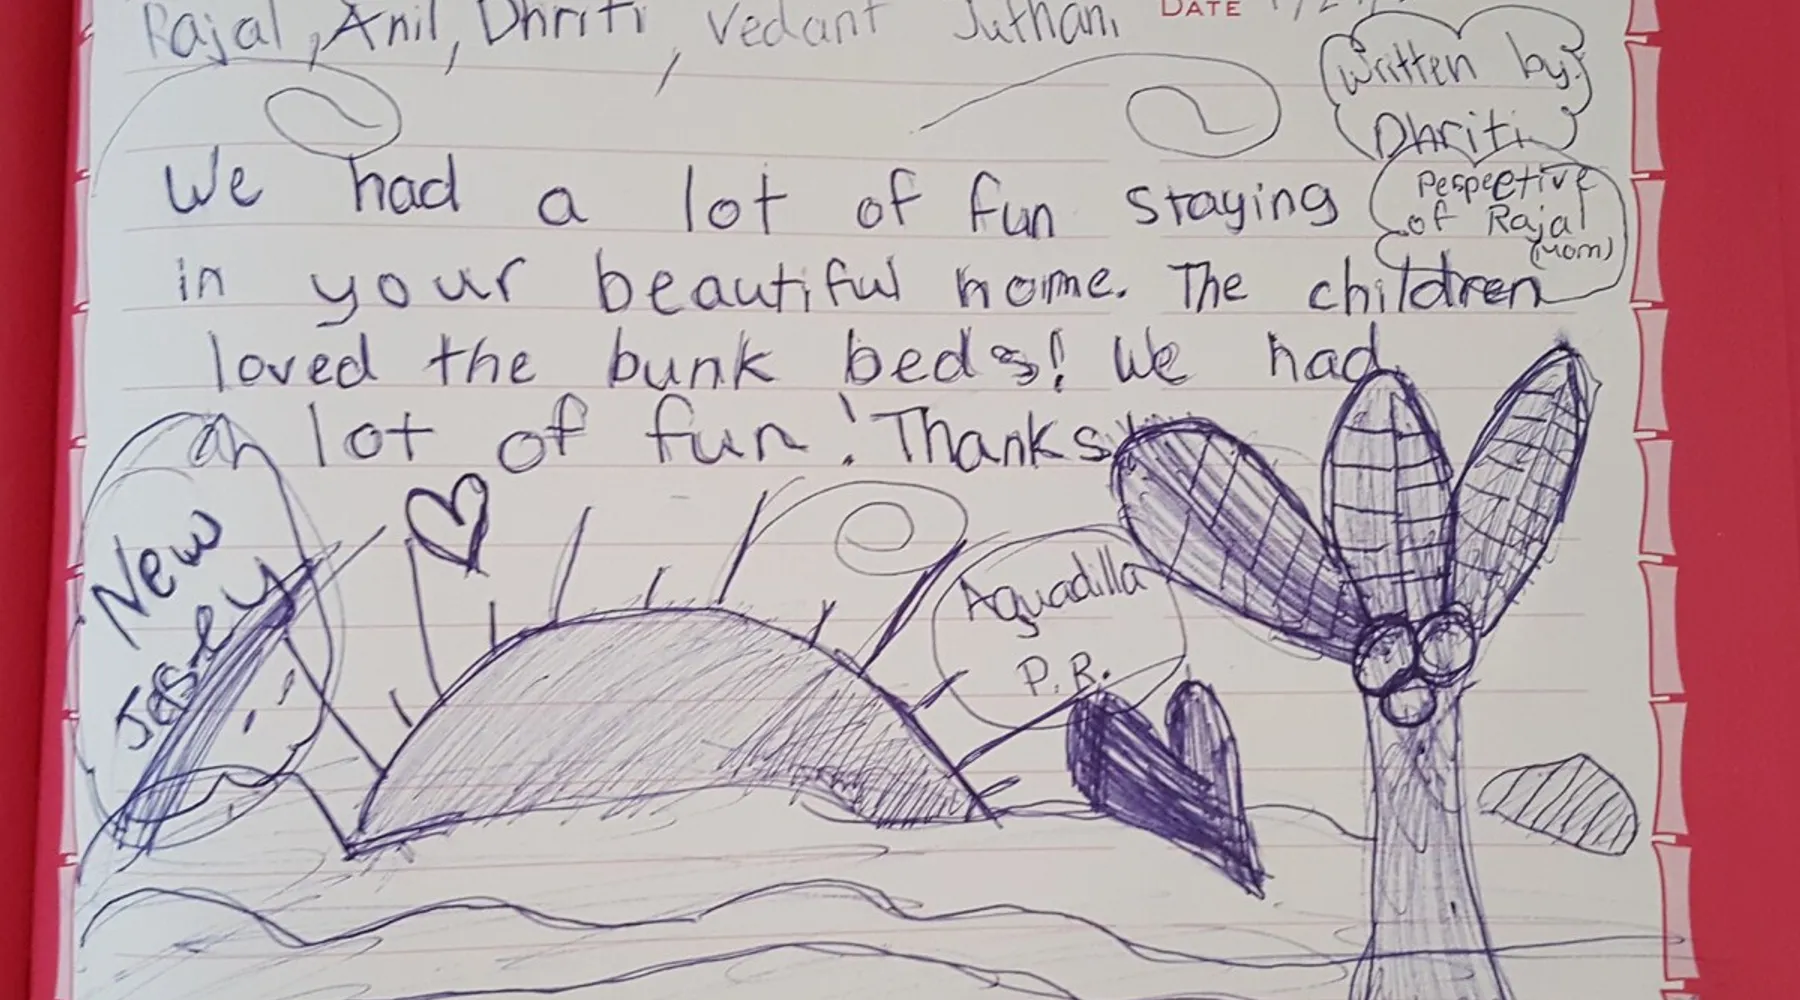 Rajal, Anil, Dhriti, Vedant Juthani
DATE
Written by
Dhriti
Pespective
of Rajal
(Mom)
We had a lot of fun staying
in your beautiful home. The children
loved the bunk beds! We had
a lot of fun! Thanks
New
Jersey
Aguadilla
P.R.